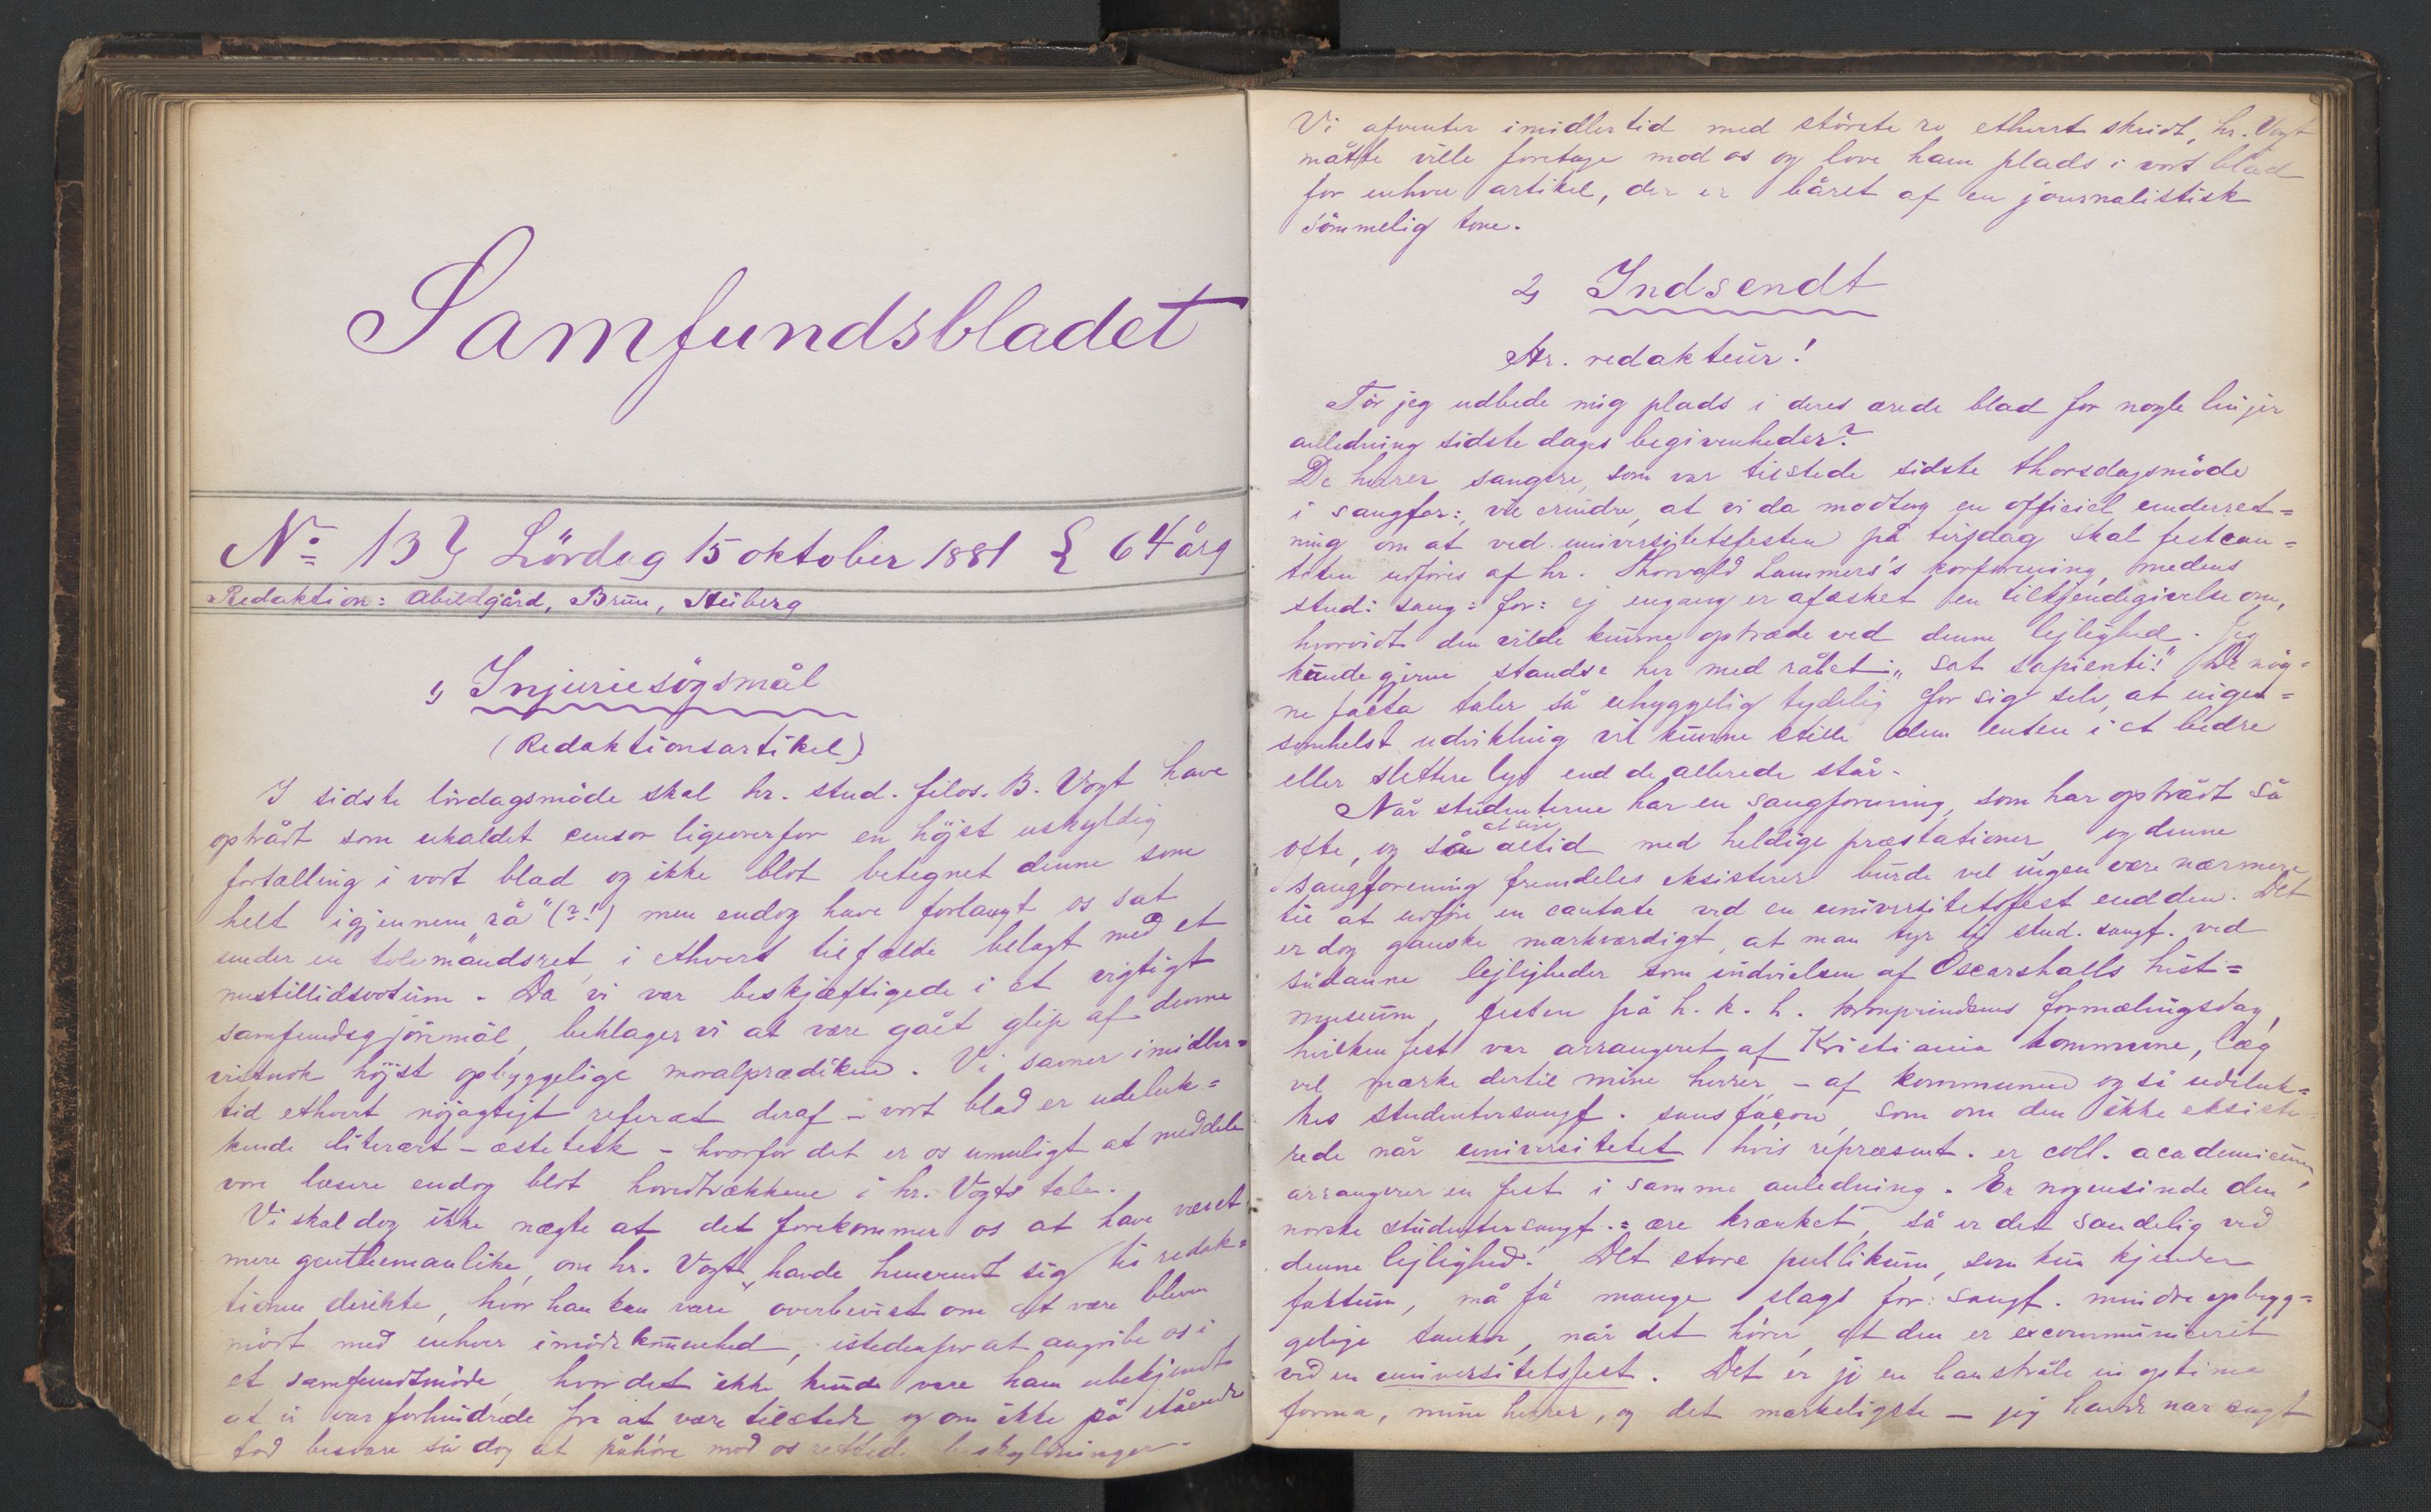 Samfundsbladet
No 13 } Lördag 15 oktober 1881 { 64 årg
Redaktion: Abildgård, Brun, Heiberg
1) Injuriesögsmål
(Redaktionsartikel)
I sidste lördagsmöde skal hr. stud. filos. B. Vogt have
optrådt som ukaldet censor ligeoverfor en höjst uskyldig
fortælling i vort blad og ikke blot betegnet denne som
helt igjennem "rå" (?!) men endog have forlangt os sat
under en tolvmandsret, i ethvert tilfælde belagt med et
mistillidsvotum. Da vi var beskjæftigede i et vigtigt
samfundsgjöremål, beklager vi at være gået glip af denne
vistnok höjst opbyggelige moralprædiken. Vi savner imidler=
tid ethvert nöjagtigt referat deraf - vort blad er udeluk=
kende literært-æstetisk - hvorfor det er os umuligt at meddele
vore læsere endog blot hovedtrækkene i hr. Vogts tale.
Vi skal dog ikke nægte at det forekommer os at have været
mere gentlemanlike, om hr. Vogt havde henvendt sig til redak=
tionen direkte, hvor han kan være overbevist om at være bleven
mödt med enhver imödekommenhed, istedenfor at angribe os i
et samfundsmöde, hvor det ikke kunde være ham ubekjendt
at vi var forhindrede fra at være tilstede og om ikke på stående
fod besvare så dog at påhöre mod os rettede beskyldninger.
Vi afventer imidlertid med störste ro ethvert skridt, hr. Vogt
måtte ville foretage mod os og love ham plads i vort blad
for enhver artikel, der er båret af en journalistisk
sömmelig tone.
2) Indsendt
Hr. redakteur!
Tör jeg udbede mig plads i deres ærede blad for nogle linjer
anledning sidste dages begivenheder?
De herrer sangere, som var tilstede sidste thorsdagsmöde
i sangfor:, vil erindre, at vi da modtog en officiel underret=
ning om at ved universitetsfesten på tirsdag skal festcan=
taten udföres af hr. Thorvald Lammers's korforening, medens
stud: sang: for: ej engang er afæsket en tilkjendegivelse om,
hvorvidt den vilde kunne optræde ved denne lejlighed. Jeg
kunde gjerne standse her med råbet: "sat sapienti!" De nög=
ne facta taler så uhyggelig tydelig for sig selv, at ingen=
somhelst udvikling vil kunne stille dem enten i et bedre
eller slettere lys end de allerede står.
Når studenterne har en sangforening, som har optrådt så
ofte, og så at sige altid med heldige præstationer, og denne
sangforening fremdeles eksisterer burde vel ingen være nærmere
til at udföre en cantate ved en universitetsfest end den. Det
er dog ganske mærkværdigt, at man tyr til stud. sangf. ved
sådanne lejligheder som indvielsen af Oscarshalls hist=
museum, festen på h. k. h. kronprindsens formælingsdag,
hvilken fest var arrangeret af Kristiania kommune, læg
vel mærke dertil mine herrer, - af kommunen og så udeluk=
kes studentersangf. sans façon, som om den ikke eksiste
rede når universitetet hvis repræsent. er coll. academicum,
arrangerer en fest i samme anledning. Er nogensinde den
norske studentersangf.= ære krænket, så er det sandelig ved
denne lejlighed! Det store publikum, som kun kjender
faktum, må få mange slags for: sangf. mindre opbygg=
gelige tanker, når det hörer, at den er excommuniceret
ved en universitetsfest. Det er jo en banstråle in optima
forma, mine herrer, og det mærkeligste - jeg havde nær sagt